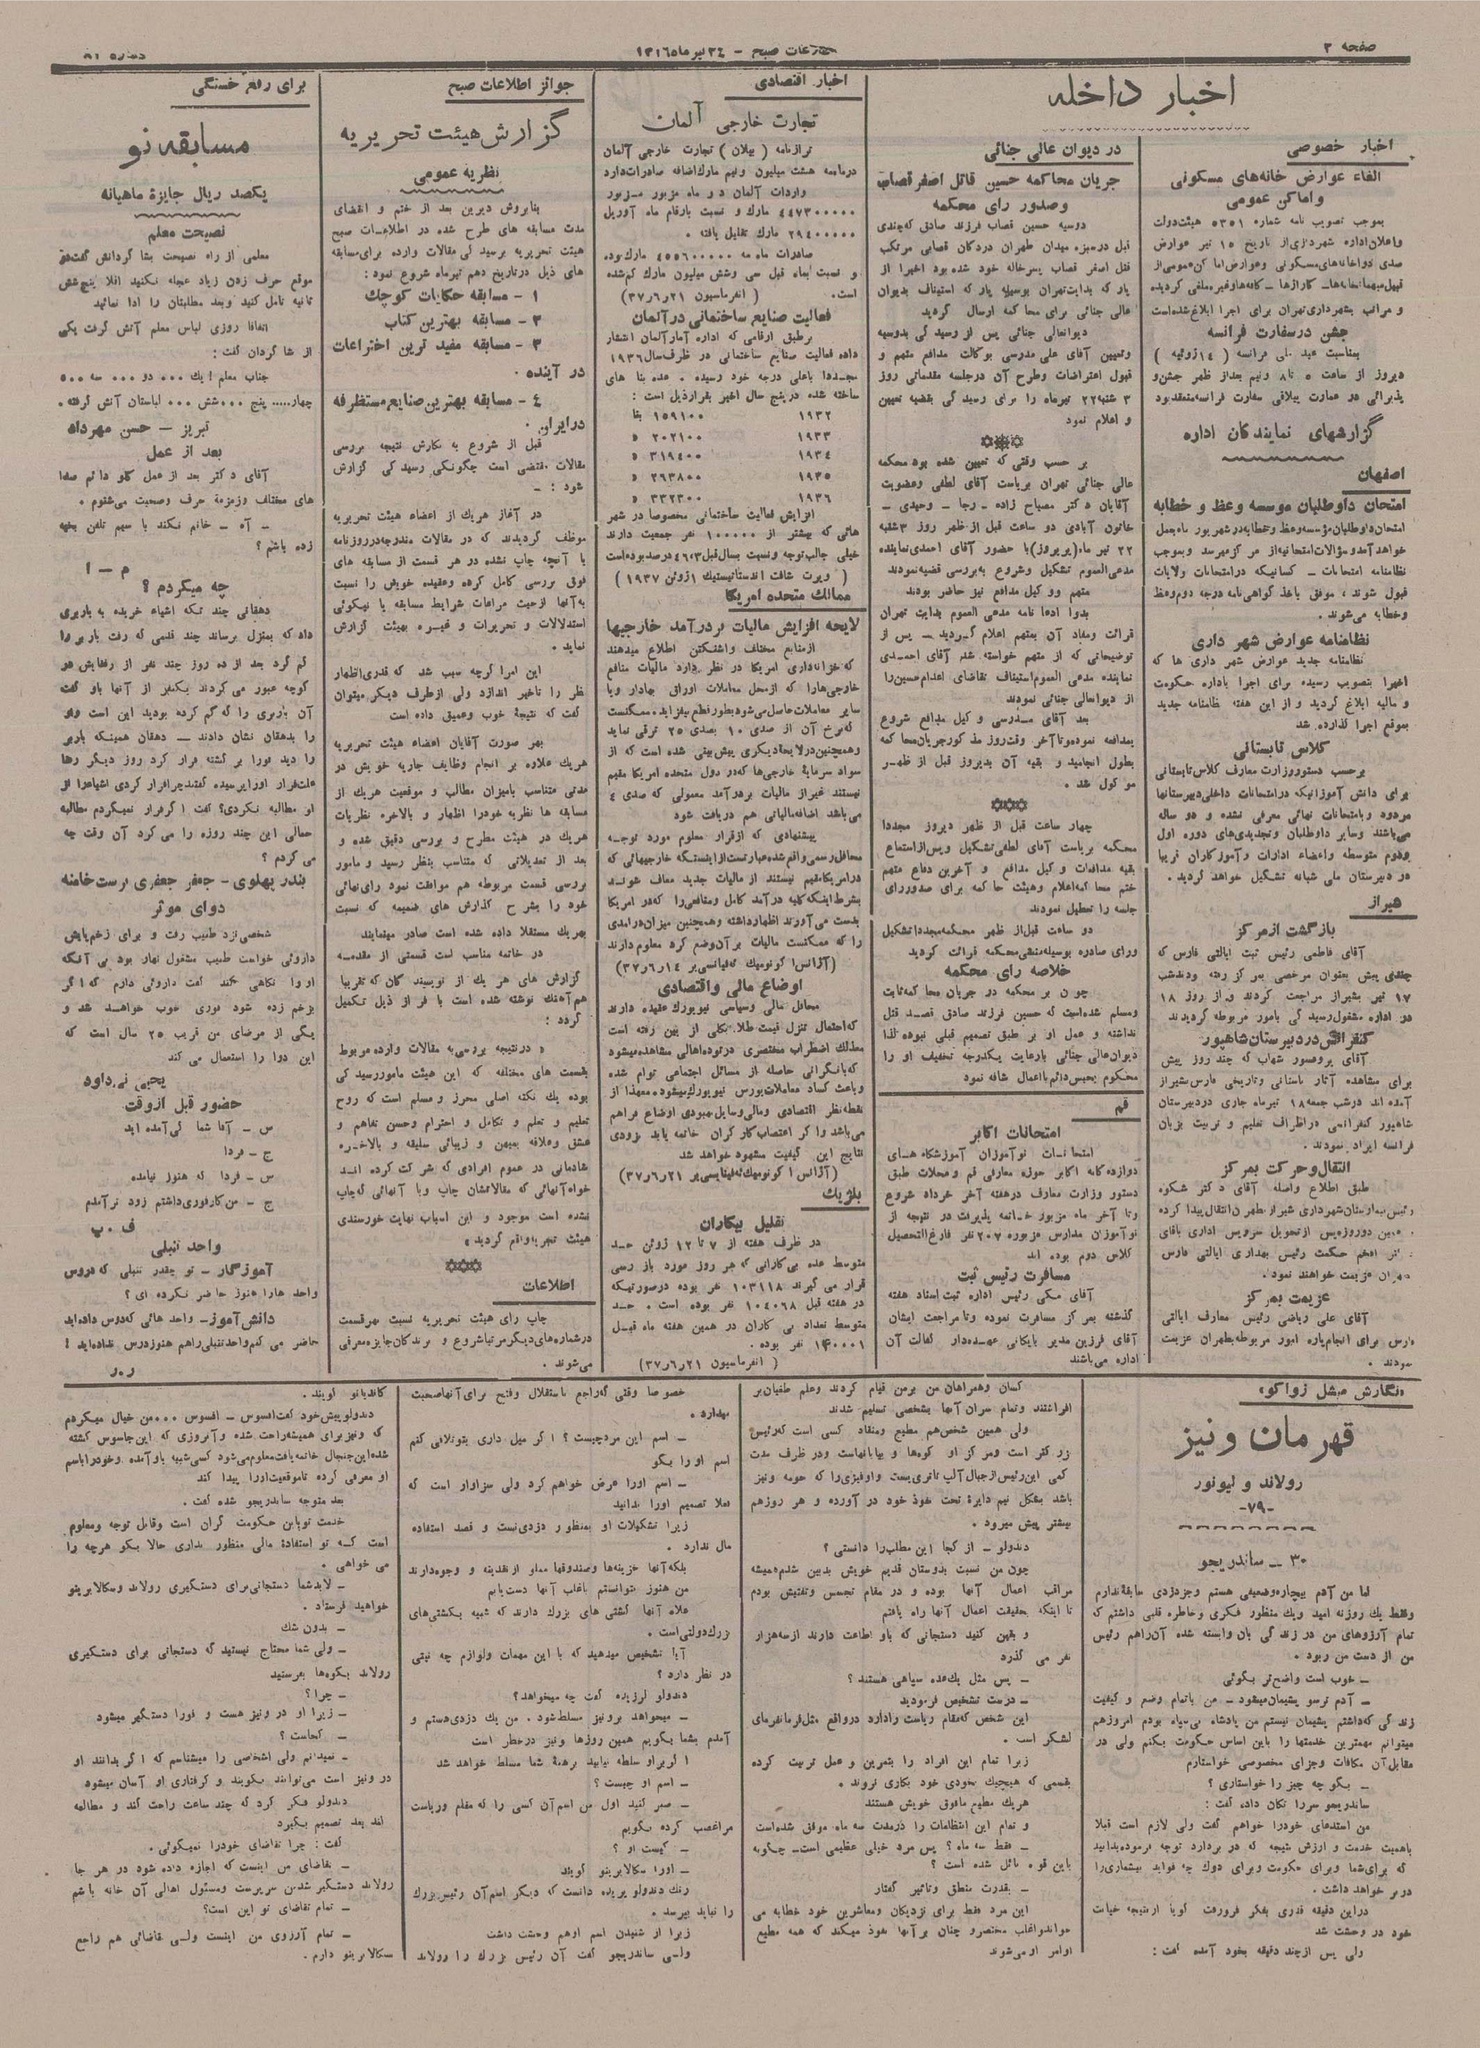 صفحه ۲
اطلاعات صبح - ۲۴ تیر ماه ۱۳۱۶
شماره ۸۱
اخبار داخله
اخبار خصوصی
الغاء عوارض خانه‌های مسکونی
واماکن عمومی
بموجب تصویب نامه شماره ۵۳۵۱ هیئت‌دولت
واعلان اداره شهرداری از تاریخ ۱۵ تیر عوارض
قبیل میهمانخانه‌ها - گاراژها - کافه‌ها وغیره ملغی گردیده
و مراتب بشهرداری تهران برای اجرا ابلاغ شده‌است
جشن درسفارت فرانسه
بمناسبت عید ملی فرانسه ( ۱۴ ژوئیه )
دیروز از ساعت ۵ تا ۸ ونیم بعداز ظهر جشن و
پذیرائی در عمارت ییلاقی سفارت فرانسه منعقد بود
گزارشهای نمایندگان اداره
اصفهان
امتحان داوطلبان موسسه وعظ و خطابه
امتحان داوطلبان مؤسسه وعظ وخطابه در شهریور ماه بعمل
خواهد آمد و سؤالات امتحانیه از مرکز میرسد وبموجب
نظامنامه امتحانات - کسانیکه در امتحانات ولایات
قبول شوند ، موفق باخذ گواهی‌نامه درجه دوم وعظ
وخطابه می‌شوند .
نظامنامه عوارض شهر داری
نظامنامه جدید عوارض شهر داری ها که
اخیرا بتصویب رسیده برای اجرا باداره حکومت
و مالیه ابلاغ گردید و از این هفته نظامنامه جدید
بموقع اجرا گذارده شد
کلاس تابستانی
برحسب دستور وزارت معارف کلاس تابستانی
برای دانش آموزانیکه در امتحانات داخلی دبیرستانها
مردود و بامتحانات نهائی معرفی نشده و دو ساله
می‌باشند وسایر داوطلبان وتجدیدی‌های دوره اول
ودوم متوسطه واعضاء ادارات وآموزگاران قریبا
در دبیرستان ملی شبانه تشکیل خواهد گردید .
شیراز
بازگشت ازمرکز
آقای فاطمی رئیس ثبت ایالتی فارس که
چندی پیش بعنوان مرخصی بمرکز رفته بودند شب
۱۷ تیر بشیراز مراجعت کردند و از روز ۱۸
در اداره مشغول رسیدگی بامور مربوطه گردیدند
کنفرانس دردبیرستان شاهپور
آقای پروفسور شهاب که چند روز پیش
برای مشاهده آثار باستانی وتاریخی فارس بشیراز
آمده اند درشب جمعه ۱۸ تیرماه جاری در دبیرستان
شاهپور کنفرانسی در اطراف تعلیم و تربیت بزبان
فرانسه ایراد نمودند .
انتقال وحرکت بمرکز
طبق اطلاع واصله آقای دکتر شکوه
رئیس بیمارستان شهرداری شیراز بطهران انتقال پیدا کرده
عزیمت بمرکز
آقای علی ریاضی رئیس معارف ایالتی
فارس برای انجام پاره امور مربوطه بطهران عزیمت
نمودند .
در دیوان عالی جنائی
جریان محاکمه حسین قاتل اصغر قصاب
وصدور رای محکمه
دوسیه حسین قصاب فرزند صادق که چندی
قبل در سبزه میدان طهران در دکان قصابی مرتکب
قتل اصغر قصاب پسرخاله خود شده بود اخیرا از
پارکه بدایت تهران بوسیله پارکه استیناف بدیوان
عالی جنائی برای محاکمه ارسال گردید
دیوانعالی جنائی پس از رسیدگی بدوسیه
وتعیین آقای علی مدرسی بوکالت مدافع متهم و
قبول اعتراضات وطرح آن درجلسه مقدماتی روز
۳ شنبه ۲۲ تیرماه را برای رسیدگی بقضیه تعیین
و اعلام نمود
بر حسب وقتی که تعیین شده بود محکمه
عالی جنائی تهران بریاست آقای لطفی وعضویت
آقایان دکتر مصباح زاده - رجا - وحیدی -
خاتون آبادی دو ساعت قبل از ظهر روز ۳ شنبه
۲۲ تیر ماه (پریروز) با حضور آقای احمدی نماینده
مدعی العموم تشکیل وشروع به بررسی قضیه نمودند
متهم و وکیل مدافع نیز حاضر بودند
بدوا ادعا نامه مدعی العموم بدایت تهران
قرائت ومفاد آن بمتهم اعلام گردید - پس از
توضیحاتی که از متهم خواسته شد آقای احمدی
نماینده مدعی العموم استیناف تقاضای اعدام حسین را
از دیوانعالی جنائی نمودند
بعد آقای مدرسی وکیل مدافع شروع
بمدافعه نموده وتا آخر وقت روز مذکور جریان محاکمه
بطول انجامید و بقیه آن بدیروز قبل از ظهر
موکول شد .
چهار ساعت قبل از ظهر دیروز مجددا
محکمه بریاست آقای لطفی تشکیل وپس از استماع
بقیه مدافعات وکیل مدافع و آخرین دفاع متهم
ختم محاکمه اعلام وهیئت حاکمه برای صدور رای
جلسه را تعطیل نمودند
دو ساعت قبل از ظهر محکمه مجددا تشکیل
ورای صادره بوسیله منشی محکمه قرائت گردید
خلاصه رای محکمه
چون بر محکمه در جریان محاکمه ثابت
ومسلم شده است که حسین فرزند صادق قصد قتل
نداشته و عمل او بر طبق تصمیم قبلی نبوده لذا
دیوان عالی جنائی بارعایت یکدرجه تخفیف او را
محکوم بحبس دائم با اعمال شاقه نمود
قم
امتحانات اکابر
امتحانات نوآموزان آموزشگاه های
دوازده گانه اکابر حوزه معارفی قم و محلات طبق
دستور وزارت معارف در هفته آخر خرداد شروع
وتا آخر ماه مزبور خاتمه پذیرفت در نتیجه از
نوآموزان مدارس مزبوره ۲۰۷ نفر فارغ التحصیل
کلاس دوم بوده اند
مسافرت رئیس ثبت
آقای مکی رئیس اداره ثبت اسناد هفته
گذشته بمرکز مسافرت نموده وتا مراجعت ایشان
آقای فرزین مدیر بایگانی عهده‌دار کفالت آن
اداره می‌باشند
اخبار اقتصادی
تجارت خارجی آلمان
ترازنامه ( بیلان ) تجارت خارجی آلمان
درماه مه هشت میلیون ونیم مارک اضافه صادرات دارد
واردات آلمان در ماه مزبور بمبلغ
۴۴۷۳۰۰۰۰۰ مارک و نسبت بارقام ماه آوریل
۲۹۴۰۰۰۰۰ مارک تقلیل یافته .
صادرات ماه مه ۴۵۵۶۰۰۰۰۰ مارک بوده
و نسبت بماه قبل سی وشش میلیون مارک کم شده
است .
( انفرماسیون ۳۷٫۶٫۲۱)
فعالیت صنایع ساختمانی درآلمان
برطبق ارقامی که اداره آمار آلمان انتشار
داده فعالیت صنایع ساختمانی در ظرف سال ۱۹۳۶
مجددا باعلی درجه خود رسیده . عده بنا های
ساخته شده در پنج سال اخیر بقرار ذیل است :
۱۹۳۲ ۱۵۹۱۰۰ بنا
۱۹۳۳ ۲۰۲۱۰۰ «
۱۹۳۴ ۳۱۹۴۰۰ «
۱۹۳۵ ۲۶۳۸۰۰ «
۱۹۳۶ ۳۳۲۳۰۰ «
افزایش فعالیت ساختمانی مخصوصا در شهر
هائی که بیشتر از ۱۰۰۰۰۰ نفر جمعیت دارند
خیلی جالب توجه ونسبت بسال قبل ۴۶٫۳ درصد بوده‌است
( ویرت شافت اند ستاتیستیک ۱ ژوئن ۱۹۳۷ )
ممالک متحده امریکا
لایحه افزایش مالیات بردرآمد خارجیها
ازمنابع مختلف واشنگتن اطلاع میدهند
که خزانه‌داری امریکا در نظر دارد مالیات منافع
خارجی‌هارا که ازمحل معاملات اوراق بهادار ویا
سایر معاملات حاصل می‌شود بطور قطع بیفزاید . ممکنست
که نرخ آن از صدی ۱۰ بصدی ۲۵ ترقی نماید
وهمچنین درلایحه دیگری پیش بینی شده است که از
سواد سرمایهٔ خارجی‌ها که در دول متحده امریکا مقیم
نیستند غیراز مالیات بردرآمد معمولی که صدی ۴
می‌باشد اضافه مالیاتی هم دریافت شود
پیشنهادی که ازقرار معلوم مورد توجه
محافل رسمی واقع شده عبارتست از اینستکه خارجیهائی که
درامریکا مقیم نیستند از مالیات جدید معاف شوند
بشرط اینکه کلیه درآمد کامل ومنافعی را که در امریکا
بدست می‌آورند اظهار داشته وهمچنین میزان درآمدی
را که ممکنست مالیات بر آن وضع کرد معلوم دارند
(آژانس اکونومیک ئه فینانسیر ۳۷٫۶٫۱۴)
اوضاع مالی واقتصادی
محافل مالی وسیاسی نیویورک عقیده دارند
که احتمال تنزل قیمت طلا بکلی از بین رفته است
معذلک اضطراب مختصری درتوده اهالی مشاهده میشود
که بانگرانی حاصله از مسائل اجتماعی توام شده
وباعث کساد معاملات بورس نیویورک میشود . معهذا از
نقطه نظر اقتصادی ومالی وسایل بهبودی اوضاع فراهم
می‌باشد واگر اعتصاب کارگران خاتمه یابد بزودی
نتایج این کیفیت مشهود خواهد شد
(آژانس اکونومیک ئه فینانسیر ۳۷٫۶٫۲۱)
بلژیک
تقلیل بیکاران
در ظرف هفته از ۷ تا ۱۲ ژوئن حد
متوسط عده بی‌کارانی که هر روز مورد بازرسی
قرار می گیرند ۱۰۳۱۱۸ نفر بوده درصورتیکه
در هفته قبل ۱۰۴۰۶۸ نفر بوده است . حد
متوسط تعداد بی کاران در همین هفته ماه قبل
۱۴۰۰۰۱ نفر بوده .
( انفرماسیون ۳۷٫۶٫۲۱)
جوائز اطلاعات صبح
گزارش هیئت تحریریه
نظریه عمومی
بنابروش دیرین بعد از ختم و انقضای
مدت مسابقه های طرح شده در اطلاعات صبح
هیئت تحریریه برسیدگی مقالات وارده برای مسابقه
های ذیل درتاریخ دهم تیرماه شروع نمود :
۱ - مسابقه حکایات کوچک
۲ - مسابقه بهترین کتاب
۳ - مسابقه مفید ترین اختراعات
در آینده .
۴ - مسابقه بهترین صنایع مستظرفه
درایران .
قبل از شروع به نگارش نتیجه بررسی
مقالات مقتضی است چگونگی رسیدگی گزارش
شود : -
در آغاز هریک از اعضاء هیئت تحریریه
موظف گردیدند که در مقالات مندرجه درروزنامه
یا آنچه چاپ نشده در هر قسمت از مسابقه های
فوق بررسی کامل کرده وعقیده خویش را نسبت
به آنها ازحیث مراعات شرایط مسابقه یا نیکوئی
استدلالات و تحریرات و غیره بهیئت گزارش
نماید .
این امر اگرچه سبب شد که قدری اظهار
نظر را بتاخیر اندازد ولی ازطرف دیگر میتوان
گفت که نتیجهٔ خوب وعمیق داده است
بهر صورت آقایان اعضاء هیئت تحریریه
هریک علاوه بر انجام وظایف جاریه خویش در
مدتی متناسب بامیزان مطالب و موقعیت هریک از
مسابقه ها نظریه خودرا اظهار و بالاخره نظریات
هریک در هیئت مطرح و بررسی دقیق شده و
بعد از تعدیلاتی که متناسب بنظر رسید و مامور
بررسی قسمت مربوطه هم موافقت نمود رای نهائی
خود را بشرح گذارش های ضمیمه که نسبت
بهریک مستقلا داده شده است صادر مینمایند
در خاتمه مناسب است قسمتی از مقدمه
گزارش های هر یک از نویسندگان که تقریبا
هم‌آهنگ نوشته شده است با فراز ذیل تکمیل
گردد :
« درنتیجه بررسی به مقالات وارده مربوط
بقسمت های مختلفه که این هیئت مامور رسیدگی
بوده یک نکته اصلی محرز و مسلم است که روح
تعلیم و تعلم و تکامل و احترام وحسن تفاهم و
عشق وعلاقه بمیهن و زیبائی سلیقه و بالاخره
شادمانی در عموم افرادی که شرکت کرده اند
خواه آنهائی که مقالاتشان چاپ ویا آنهائی که چاپ
نشده است موجود و این اسباب نهایت خورسندی
هیئت تحریریه واقع گردید »
اطلاعات
چاپ رای هیئت تحریریه نسبت بهر قسمت
درشماره‌های دیگر مرتبا شروع و برندگان جایزه معرفی
می‌شوند .
برای رفع خستگی
مسابقه نو
یکصد ریال جایزهٔ ماهیانه
نصیحت معلم
معلمی از راه نصیحت بشاگردانش گفت در
موقع حرف زدن زیاد عجله نکنید اقلا پنج شش
ثانیه تامل کنید وبعد مطلبتان را ادا نمائید
اتفاقا روزی لباس معلم آتش گرفت یکی
از شاگردان گفت :
جناب معلم ! یک ... دو ... سه ...
چهار..... پنج ... شش ... لباستان آتش گرفته .
تبریز - حسن مهرداد
بعد از عمل
آقای دکتر بعد از عمل گلو دائم صدا
های مختلف وزمزمهٔ حرف وصحبت می‌شنوم .
- آه - خانم نکند با سیم تلفن بخیه
زده باشم ؟
م - ا
چه میکردم ؟
دهقانی چند تکه اشیاء خریده به باربری
داد که بمنزل برساند چند قدمی که رفت باربر را
گم کرد بعد از ده روز چند نفر از رفقایش در
کوچه عبور می کردند یکنفر از آنها باو گفت
آن باربری را که گم کرده بودید این است واو
را بدهقان نشان دادند - دهقان همینکه باربر
را دید فورا برگشته فرار کرد روز دیگر رفقا
علت فرار اورا پرسیده گفتند چرا فرار کردی اشیاء را از
او مطالبه نکردی؟ گفت اگر فرار نمیکردم مطالبه
حمالی این چند روزه را می کرد آن وقت چه
می کردم ؟
بندر پهلوی - جعفر جعفری درست خامنه
دوای موثر
شخصی نزد طبیب رفت و برای زخم پایش
داروئی خواست طبیب مشغول نهار بود بی آنکه
اورا نگاهی کند گفت داروئی دارم که اگر
بزخم زده شود فوری خوب خواهد شد و
یکی از مرضای من قریب ۲۵ سال است که
این دوا را استعمال می کند
یحیی نی‌داود
حضور قبل ازوقت
س - آقا شما کی آمده اید
ج - فردا
س - فردا که هنوز نیامده
ج - من کار فوری داشتم زود تر آمدم
ف . پ
واحد تنبلی
آموزگار - تو چقدر تنبلی که دروس
واحد هارا هنوز حاضر نکرده ای ؟
دانش آموز - واحد هائی که درس داده‌اید
حاضر می کنم واحد تنبلی را هم هنوز درس نداده‌اید !
ر . ر
«نگارش میشل زواکو»
قهرمان ونیز
رولاند و لیونور
-۷۹-
۳۰ - ساندریجو
اما من آدم بیچاره وضعیفی هستم وجز دزدی سابقه ندارم
وفقط یک روزنه امید ویک منظور فکری وخاطره قلبی داشتم که
تمام آرزوهای من در زندگی بان وابسته شده آن را هم رئیس
من از دست من ربود .
- خوب است واضح‌تر بگوئی
- آدم ترسو پشیمان میشود - من باتمام وضع و کیفیت
زندگی که داشتم پشیمان نیستم من پادشاه بی‌سپاه بودم امروز هم
میتوانم مهمترین خدمتها را باین اساس حکومت بکنم ولی در
مقابل آن مکافات وجزای مخصوصی خواستارم
- بگو چه چیز را خواستاری ؟
ساندریجو سر را تکان داده گفت :
من استدعای خودرا خواهم گفت ولی لازم است قبلا
باهمیت خدمت و ارزش نتیجه که در بردارد توجه فرموده بدانید
که برای شما وبرای حکومت وبرای دوک چه فواید بیشماری را
در بر خواهد داشت .
دراین دقیقه قدری بفکر فرورفت گویا ازنتیجه خیانت
خود در وحشت شد
ولی پس ازچند دقیقه بخود آمده گفت :
کسان وهمراهان من برمن قیام کردند وعلم طغیان بر
افراشتند وتمام سران آنها بشخصی تسلیم شدند
ولی همین شخص هم مطیع ومنقاد کسی است که رئیس
بزرگتر است ومرکز او کوه‌ها و بیابانهاست ودر ظرف مدت
کمی این رئیس ازجبال آلپ تا تری‌یست واوفیزی را که حومه ونیز
باشد بشکل نیم دایرهٔ تحت نفوذ خود در آورده و هر روزهم
بیشتر پیش میرود .
دندولو - از کجا این مطلب را دانستی ؟
چون من نسبت بدوستان قدیم خویش بدبین شدم همیشه
مراقب اعمال آنها بوده و در مقام تجسس وتفتیش بودم
تا اینکه بحقیقت اعمال آنها راه یافتم
و یقین کنید دستجاتی که باو اطاعت دارند ازسه هزار
نفر می گذرد
- پس مثل یک عده سپاهی هستند ؟
- درست تشخیص فرمودید
این شخص که مقام ریاست را دارد درواقع مثل فرمانفرمای
لشگر است .
زیرا تمام این افراد را بتمرین و عمل تربیت کرده
بقسمی که هیچیک بخودی خود بکاری نروند .
هریک مطیع مافوق خویش هستند
و تمام این انتظامات را درمدت سه ماه موفق شده است
- فقط سه ماه ؟ پس مرد خیلی عظیمی است - چگونه
باین قوه نائل شده است ؟
- بقدرت منطق وتاثیر گفتار
این مرد فقط برای نزدیکان ومعاشرین خود خطابه می
خواند واغلب مختصر و چنان بر آنها نفوذ میکند که همه مطیع
اوامر او می‌شوند
خصوصا وقتی که راجع باستقلال وفتح برای آنها صحبت
میدارد .
- اسم این مرد چیست ؟ اگر میل داری بتو تلافی کنم
اسم او را بگو
- اسم اورا عرض خواهم کرد ولی سزاوار است که
فعلا تصمیم اورا بدانید
زیرا تشکیلات او بمنظور دزدی نیست و قصد استفاده
مال ندارد .
بلکه آنها خزینه‌ها وصندوقها مملو از نقدینه و وجوه دارند
من هنوز نتوانستم باغلب آنها دست یابم
علاوه آنها کشتی های بزرک دارند که شبیه بکشتی‌های
بزرک دولتی است .
آیا تشخیص میدهید که با این مهمات ولوازم چه نیتی
در نظر دارد ؟
دندولو لرزیده گفت چه میخواهد ؟
- میخواهد برونیز مسلط شود . من یک دزدی هستم و
آمدم بشما بگویم همین روزها ونیز درخطر است
اگر براو سلطه نیابید برهمهٔ شما مسلط خواهد شد
- اسم او چیست ؟
- صبر کنید اول من اسم آن کسی را که مقام وریاست
مراغصب کرده بگویم
- کیست او ؟
- اورا سکالابرینو گویند
رنک دندولو پریده دانست که دیگر اسم آن رئیس بزرک
را نباید بپرسد .
زیرا از شنیدن اسم اوهم وحشت داشت
ولی ساندریجو گفت آن رئیس بزرک را رولاند
کاندیانو گویند .
دندولو پیش خود گفت افسوس - افسوس ... من خیال میکردم
که ونیز برای همیشه راحت شده وامروزی که این جاسوس کشته
شده این جنجال خاتمه یافت معلوم می‌شود کسی شبیه باو آمده وخودرا باسم
او معرفی کرده تا موقعیت اورا پیدا کند
بعد متوجه ساندریجو شده گفت .
خدمت تو باین حکومت گران است وقابل توجه ومعلوم
است که تو استفادهٔ مالی منظور نداری حالا بگو هرچه را
می خواهی .
- لابد شما دستجاتی برای دستگیری رولاند وسکالابرینو
خواهید فرستاد .
- بدون شک
- ولی شما محتاج نیستید که دستجاتی برای دستگیری
رولاند بکوه‌ها بفرستید
- چرا ؟
- زیرا او در ونیز هست و فورا دستگیر میشود
- کجاست ؟
- نمیدانم ولی اشخاصی را میشناسم که اگر بدانند او
در ونیز است می‌توانند بگویند و گرفتاری او آسان میشود
دندولو فکر کرد که چند ساعت راحت کند و مطالعه
کند بعد تصمیم بگیرد
گفت : چرا تقاضای خودرا نمیگوئی .
- تقاضای من اینست که اجازه داده شود در هر جا
رولاند دستگیر شد من سرپرست ومسئول اهالی آن خانه باشم
- تمام تقاضای تو این است؟
- تمام آرزوی من اینست ولی تقاضائی هم راجع
بسکالابرینو دارم .